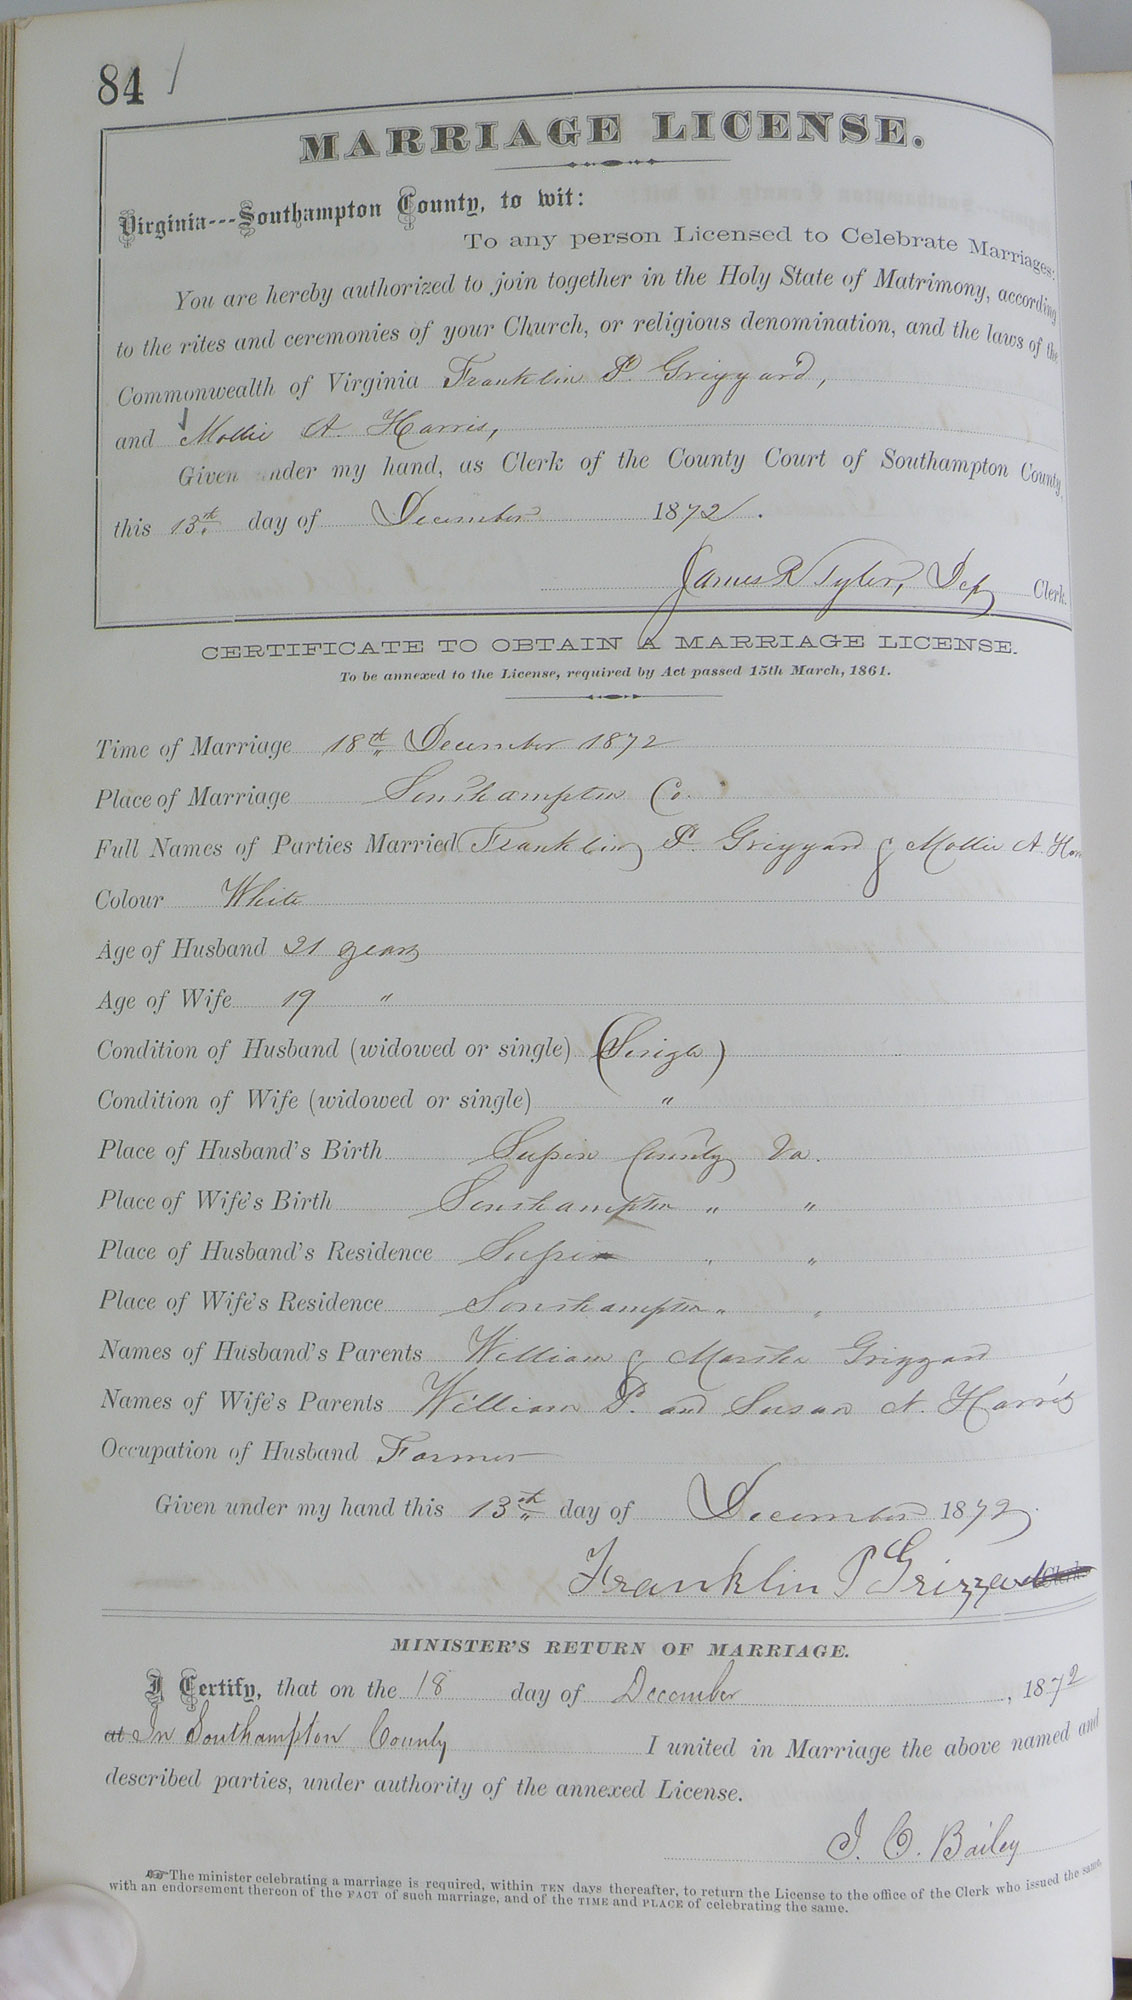 84
MARRIAGE LICENSE.
Virginia---Southampton County, to wit:
To any person Licensed to Celebrate Marriages:
You are hereby authorized to join together in the Holy State of Matrimony, according
to the rites and ceremonies of your Church, or religious denomination, and the laws of the
Commonwealth of Virginia Franklin P. Grizzard,
and Mollie A. Harris,
Given under my hand, as Clerk of the County Court of Southampton County,
this 13th day of December 1872.
James R Tyler, Dep Clerk.
CERTIFICATE TO OBTAIN A MARRIAGE LICENSE.
To be annexed to the License, required by Act passed 15th March, 1861.
Time of Marriage 18th December 1872
Place of Marriage Southampton Co.
Full Names of Parties Married Franklin P. Grizzard & Mollie A. Harr
Colour White
Age of Husband 21 years
Age of Wife 19 "
Condition of Husband (widowed or single) (Single)
Condition of Wife (widowed or single) "
Place of Husband's Birth Sussex County Va.
Place of Wife's Birth Southampton " "
Place of Husband's Residence Sussex " "
Place of Wife's Residence Southampton " "
Names of Husband's Parents William & Martha Grizzard
Names of Wife's Parents William P. and Susan A. Harris
Occupation of Husband Farmer
Given under my hand this 13th day of December 1872.
Franklin P Grizzard Clerk.
MINISTER'S RETURN OF MARRIAGE.
I Certify, that on the 18 day of December, 1872
at In Southampton County I united in Marriage the above named and
described parties, under authority of the annexed License.
J. C. Bailey
☞The minister celebrating a marriage is required, within TEN days thereafter, to return the License to the office of the Clerk who issued the same,
with an endorsement thereon of the FACT of such marriage, and of the TIME and PLACE of celebrating the same.